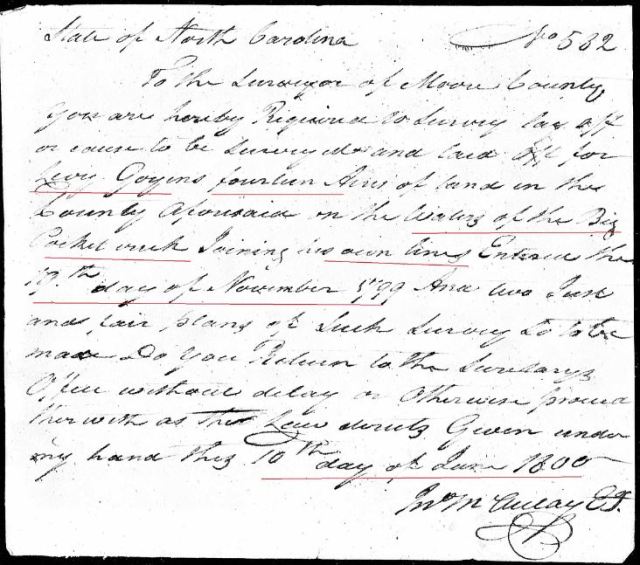 State of North Carolina No 532
To the Surveyor of Moore County
You are hereby Required to Survey lay off
or cause to be Surveyd and laid off for
Levy Goyens fourteen Acres of land in the
County Aforesaid on the Waters of the Big
Pocket creek Joining his own lines Entered the
19th day of November 1799 And two Just
and fair plans of Such Survey so to be
made Do you Return to the Secretarys
Office without delay or Otherwise proceed
therwith as the Law directs Given under
my hand this 10th day of June 1800
Jno McAulay E.T.